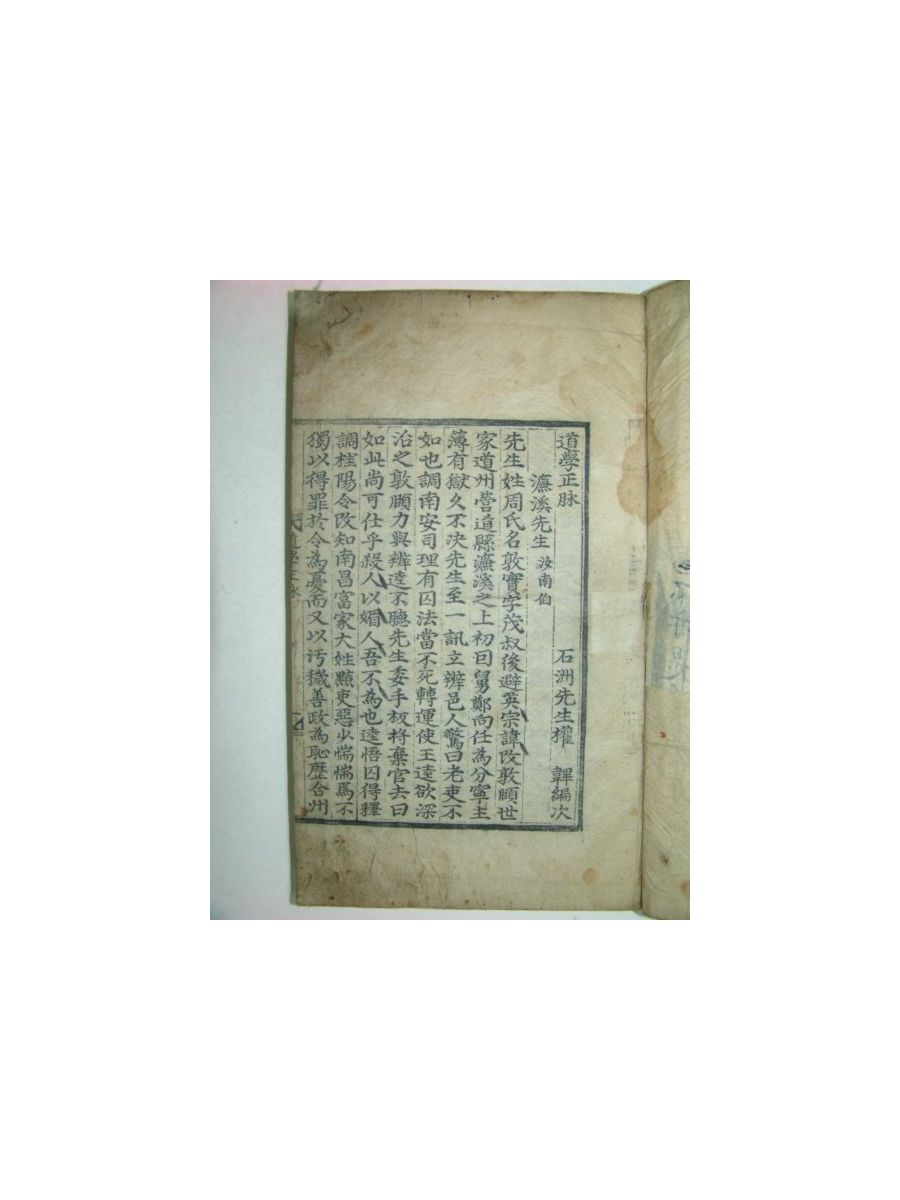 道學正脉
石洲先生權 韠編次
濂溪先生 汝南伯
先生姓周氏名敦實字茂叔後避英宗諱改敦頤世
家道州營道縣濂溪之上初因舅鄭向任為分寧主
簿有獄久不決先生至一訊立辨邑人驚曰老吏不
如也調南安司理有囚法當不死轉運使王逵欲深
治之敦頤力與辨逵不聽先生委手板將棄官去曰
如此尚可仕乎殺人以媚人吾不為也逵悟囚得釋
調桂陽令改知南昌富家大姓黠吏惡少惴惴焉不
獨以得罪於令為憂而又以汚穢善政為恥歷合州
道學正脉